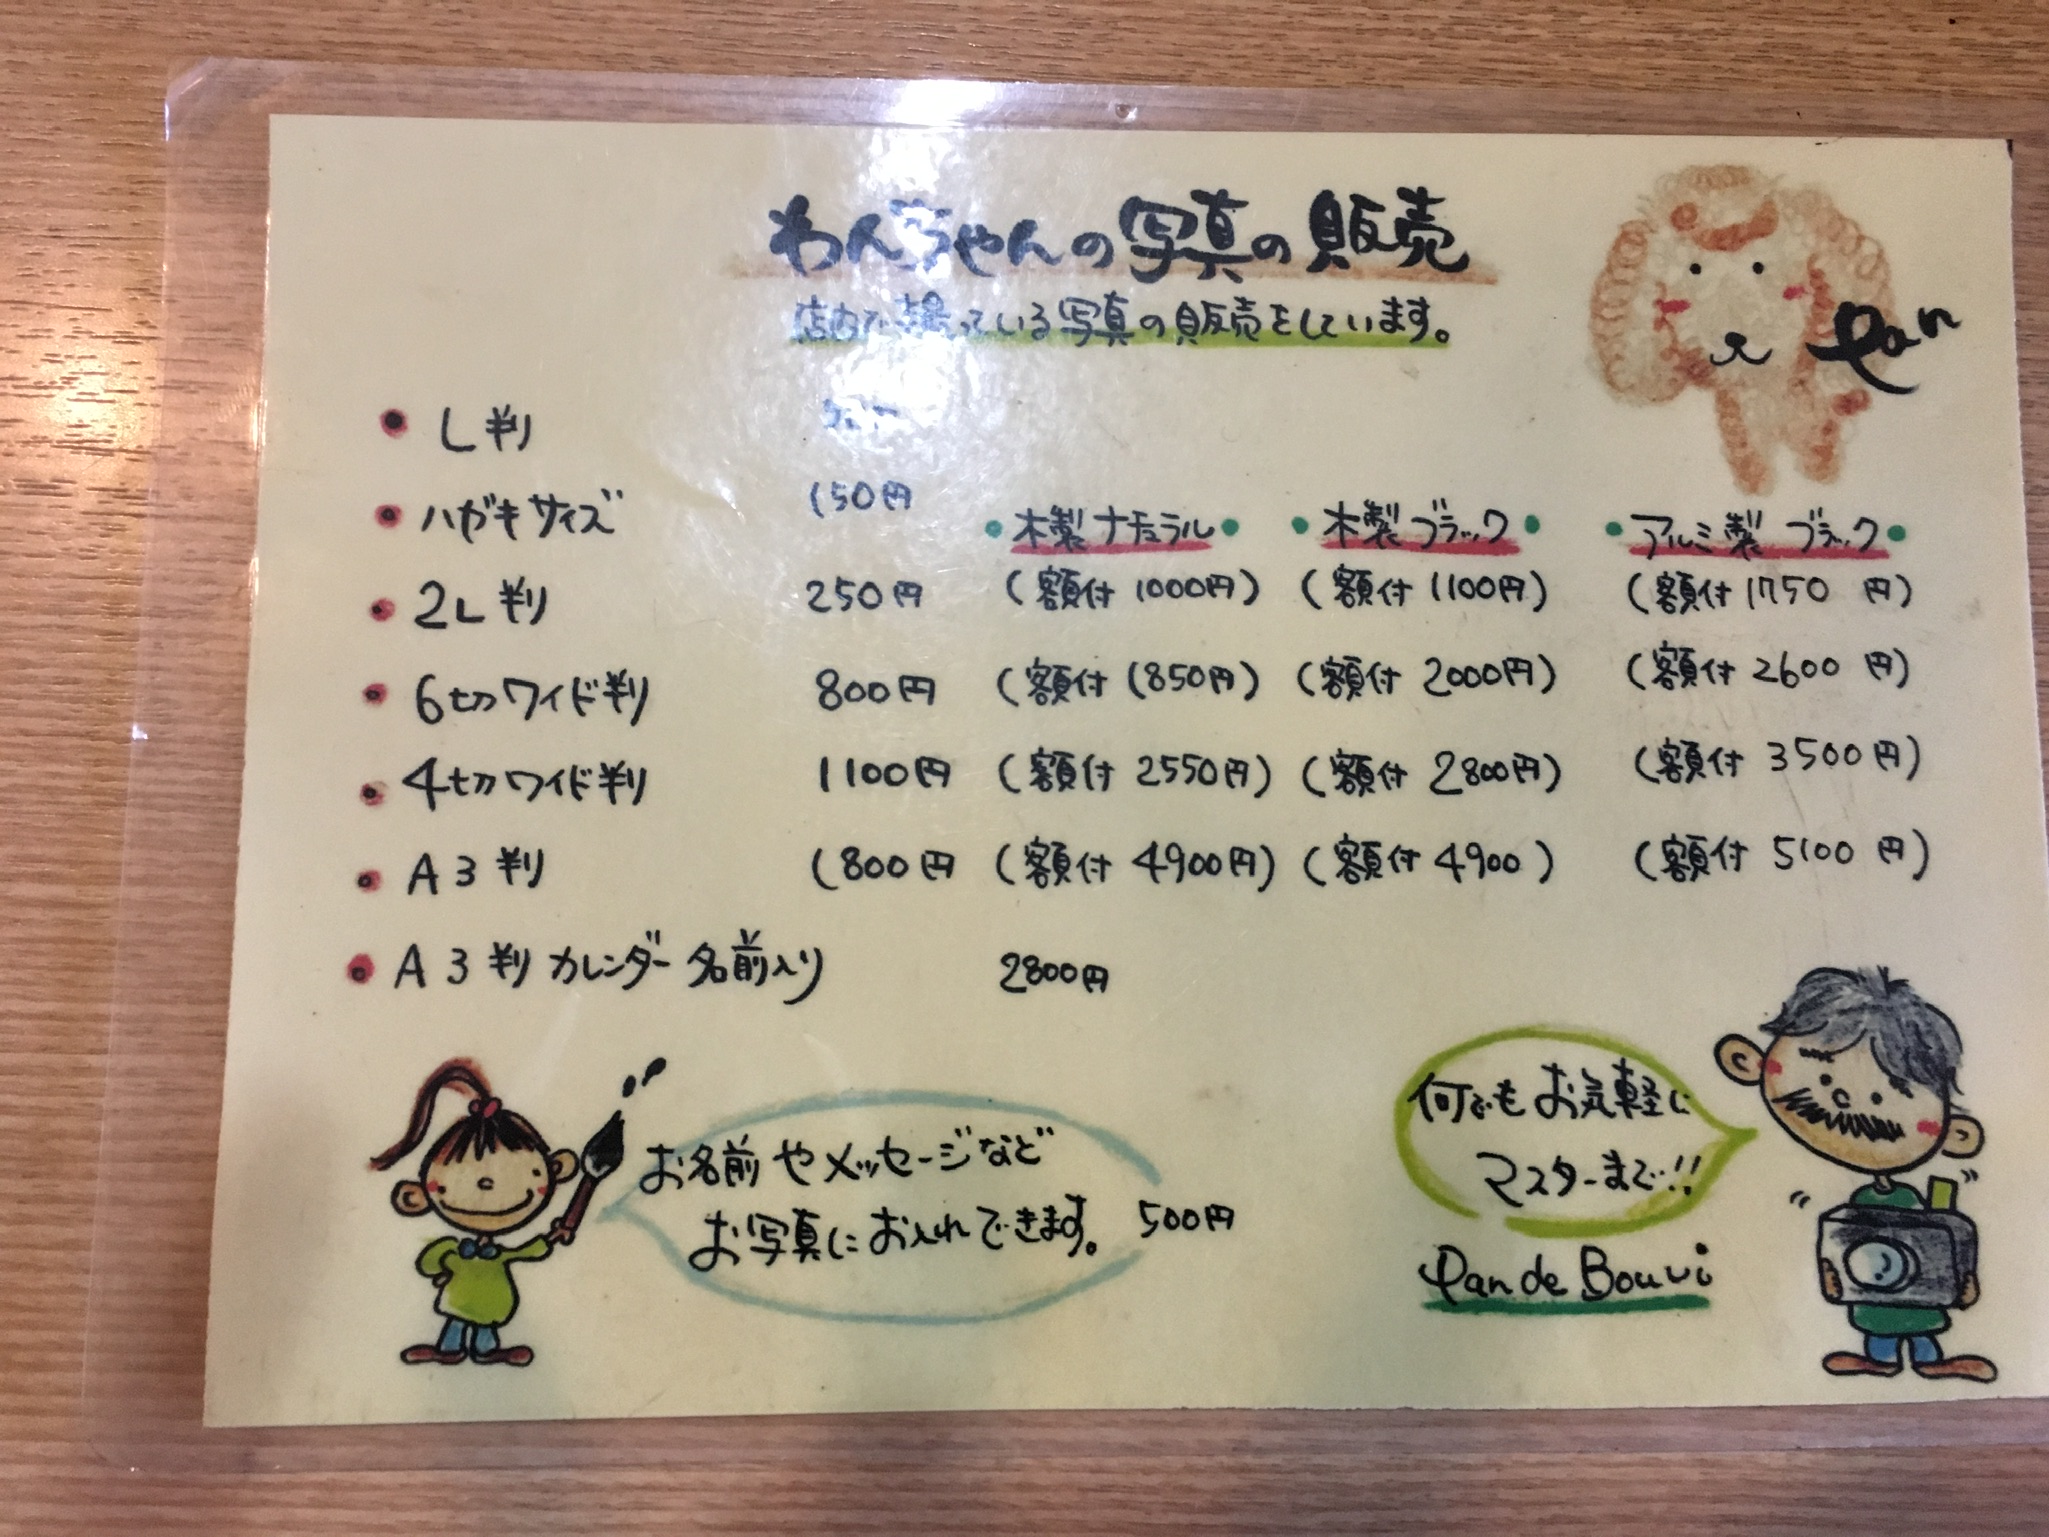 わんちゃんの写真の販売
店内で撮っている写真の販売をしています。
Pan
L判
ハガキサイズ 150円
木製ナチュラル 木製ブラック アルミ製 ブラック
2L判 250円 (額付 1000円) (額付 1100円) (額付 1750円)
6切ワイド判 800円 (額付 1850円) (額付 2000円) (額付 2600円)
4切ワイド判 1100円 (額付 2550円) (額付 2800円) (額付 3500円)
A3判 1800円 (額付 4900円) (額付 4900) (額付 5100円)
A3判 カレンダー 名前入り 2800円
お名前やメッセージなど
お写真にお入れできます。 500円
何でもお気軽に
マスターまで!!
Pan de Bouvi